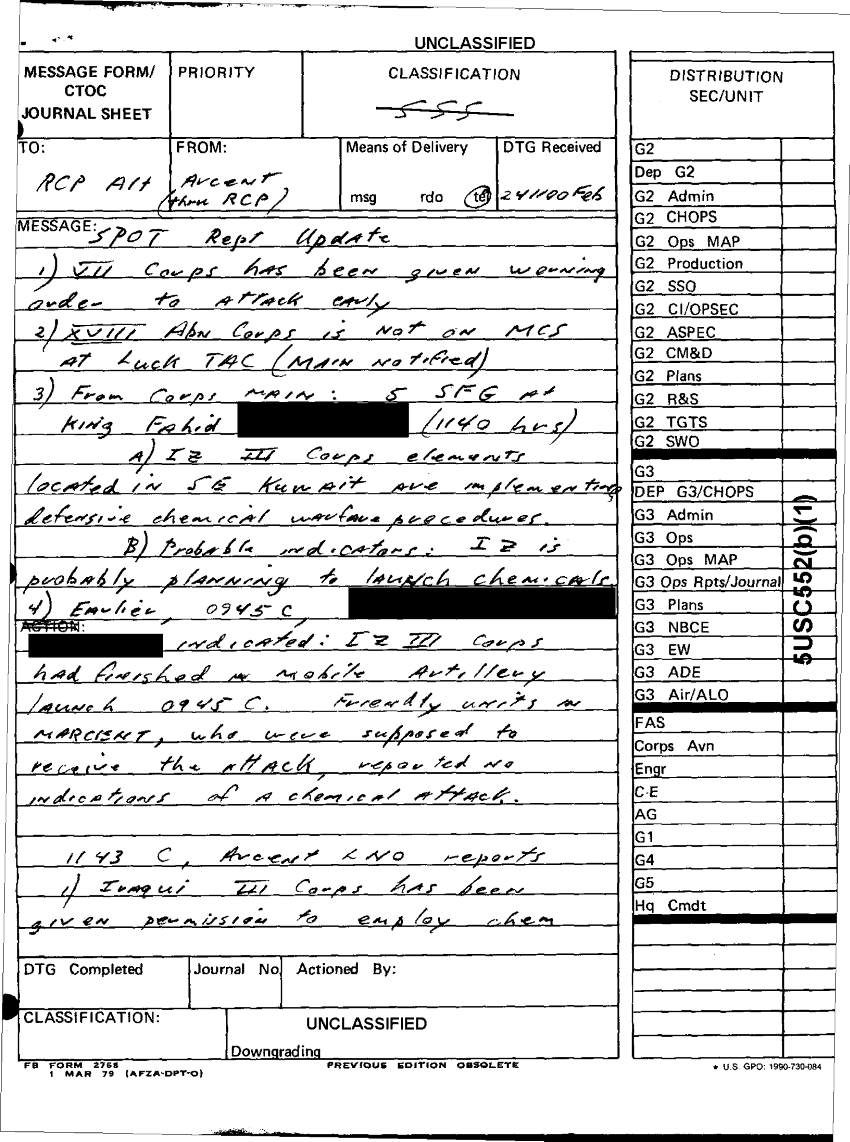 UNCLASSIFIED
MESSAGE FORM/
CTOC
JOURNAL SHEET
PRIORITY
CLASSIFICATION
SSS
TO:
RCP Alt
FROM:
Arcent
(thru RCP)
Means of Delivery
msg rdo tel
DTG Received
241100 Feb
MESSAGE:
SPOT Rept Update
1) VII Corps has been given warning
order to attack early
2) XVIII Abn Corps is not on MCS
at Luck TAC (Main notified)
3) From Corps Main: 5 SFG at
King Fahid (1140 hrs)
A) IZ III Corps elements
located in SE Kuwait are implementing
defensive chemical warfare procedures.
B) Probable indicators: IZ is
probably planning to launch chemicals
4) Earlier, 0945 C,
ACTION:
indicated: IZ III Corps
had finished a mobile Artillery
launch 0945 C. Friendly units in
MARCENT, who were supposed to
receive the attack, reported no
indications of a chemical attack.
1143 C, Arcent LNO reports
1) Iraqui III Corps has been
given permission to employ chem
DTG Completed
Journal No
Actioned By:
CLASSIFICATION:
UNCLASSIFIED
Downgrading
FB FORM 2765
1 MAR 79 (AFZA-DPT-O)
PREVIOUS EDITION OBSOLETE
DISTRIBUTION
SEC/UNIT
G2
Dep G2
G2 Admin
G2 CHOPS
G2 Ops MAP
G2 Production
G2 SSO
G2 CI/OPSEC
G2 ASPEC
G2 CM&D
G2 Plans
G2 R&S
G2 TGTS
G2 SWO
G3
DEP G3/CHOPS
G3 Admin
G3 Ops
G3 Ops MAP
G3 Ops Rpts/Journal
G3 Plans
G3 NBCE
G3 EW
G3 ADE
G3 Air/ALO
FAS
Corps Avn
Engr
C-E
AG
G1
G4
G5
Hq Cmdt
5USC552(b)(1)
* U.S. GPO: 1990-730-084